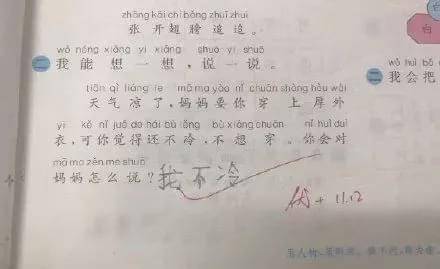 zhāng kāi chì bǎng zhuī zhuī
张 开 翅 膀 追 追 。
白
wǒ néng xiǎng yi xiǎng shuō yi shuō
二 我 能 想 一 想 , 说 一 说 。
tiān qì liáng le mā ma yào nǐ chuān shàng hòu wài
天 气 凉 了 , 妈 妈 要 你 穿 上 厚 外
yī kě nǐ jué de hái bù lěng bù xiǎng chuān nǐ huì duì
衣 , 可 你 觉 得 还 不 冷 , 不 想 穿 。 你 会 对
mā ma zěn me shuō
妈 妈 怎 么 说 ? 我 不 冷
优+ 11.12
wǒ huì bǎ
二 我 会 把